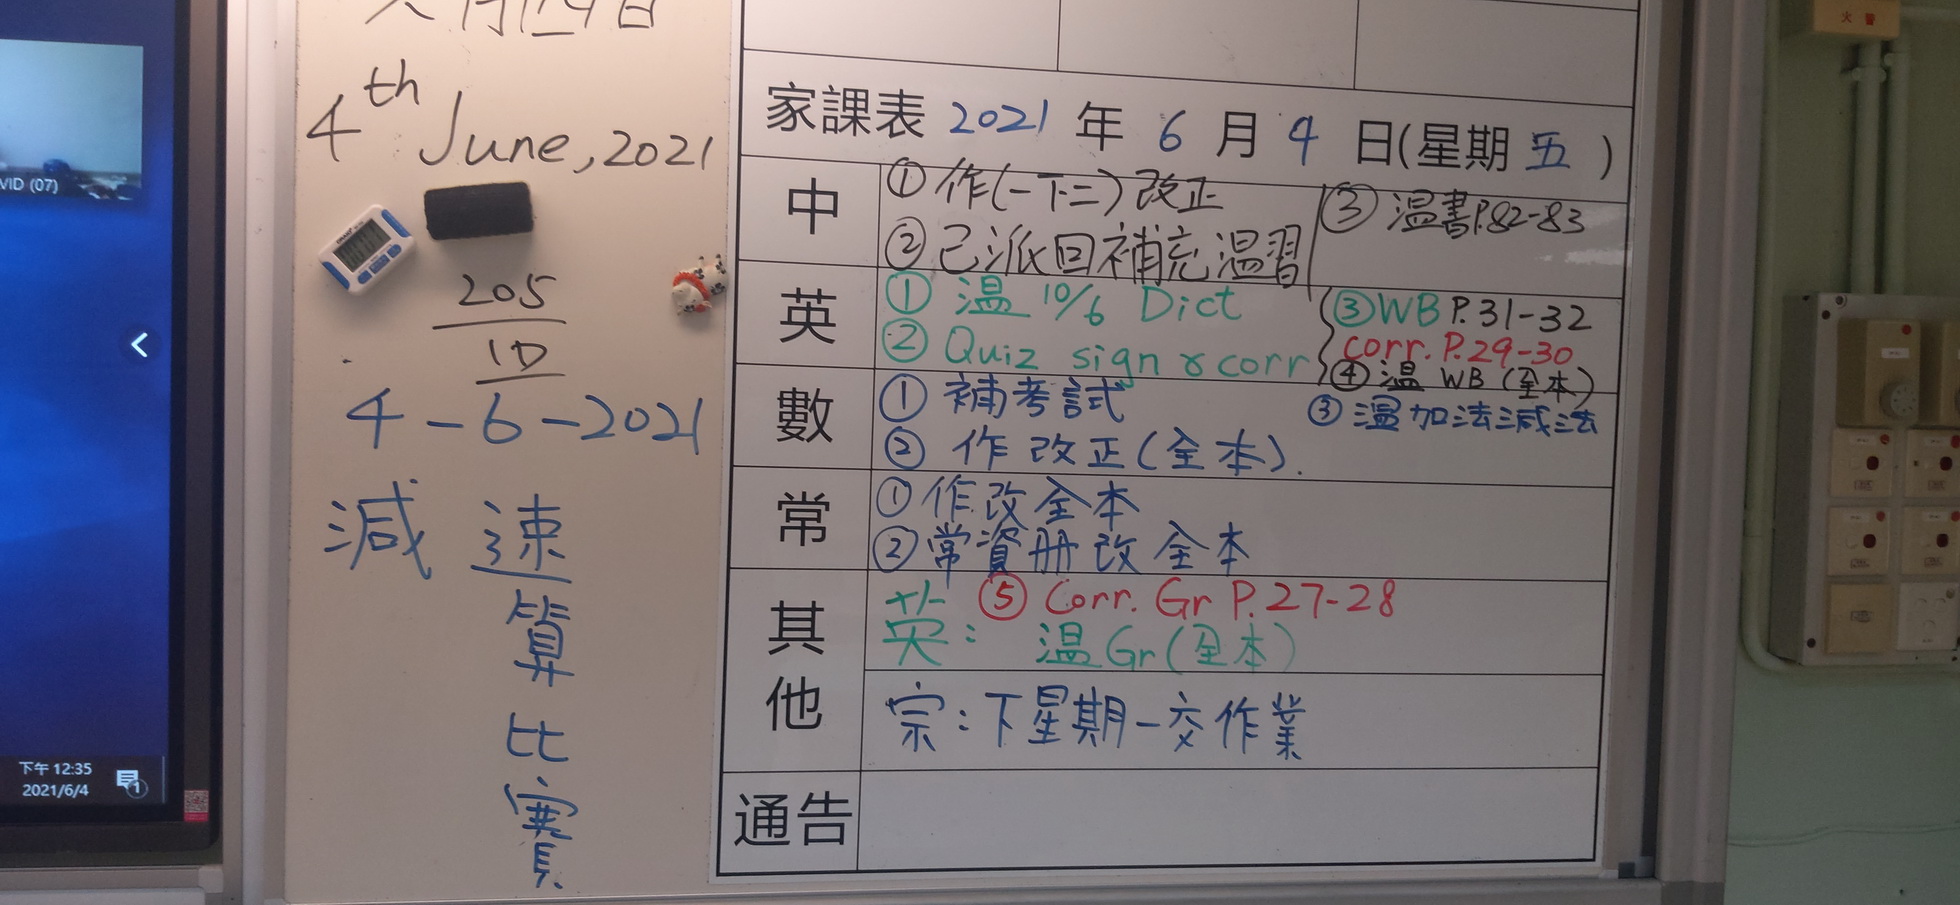 六月四日
4th June, 2021
205
1D
4-6-2021
減 速
算
比
賽
家課表 2021 年 6 月 4 日(星期 五 )
中
① 作(一下二) 改正
② 已派回補充溫習
③ 溫書P.82-83
英
① 溫 10/6 Dict
② Quiz sign & corr
③ WB P.31-32
corr. P.29-30
④ 溫 WB (全本)
數
① 補考試
② 作 改正(全本).
③ 溫加法減法
常
① 作改全本
② 常資册改全本
其他
英: ⑤ Corr. Gr P.27-28
溫 Gr (全本)
宗:下星期一交作業
通告
VID (07)
下午 12:35
2021/6/4
1
火警